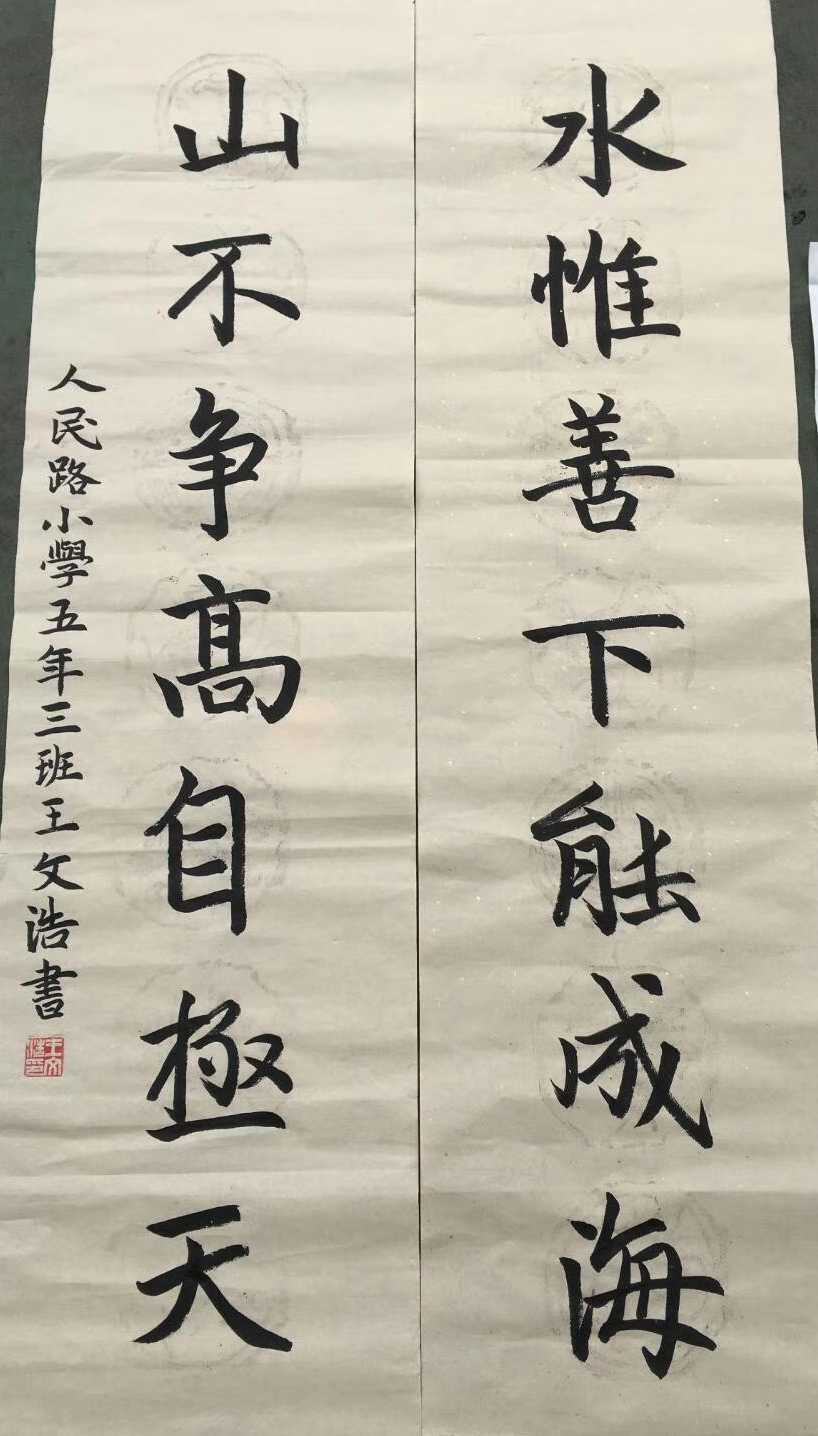 水惟善下能成海
山不争高自极天
人民路小學五年三班王文浩書
王文浩印